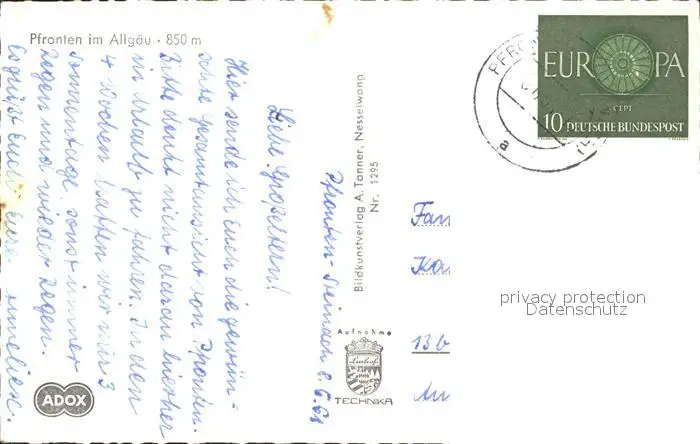 Pfronten im Allgäu · 850 m
Pfronten-Steinach 8.6.61
Liebe Großeltern!
Hier sende ich Euch die gewün-
schte Gesamtansicht von Pfronten.
Bitte denkt nicht daran hierher
in Urlaub zu fahren. In den
4 Wochen hatten wir nur 3
Sonnentage, sonst immer
Regen und wieder Regen.
Es grüßt Euch Eure
ADOX
Bildkunstverlag A. Tanner, Nesselwang
Nr. 1295
Aufnahme
Linhof
TECHNIKA
PFRO
a
EUROPA
CEPT
10 DEUTSCHE BUNDESPOST
Fam
13b
privacy protection
Datenschutz